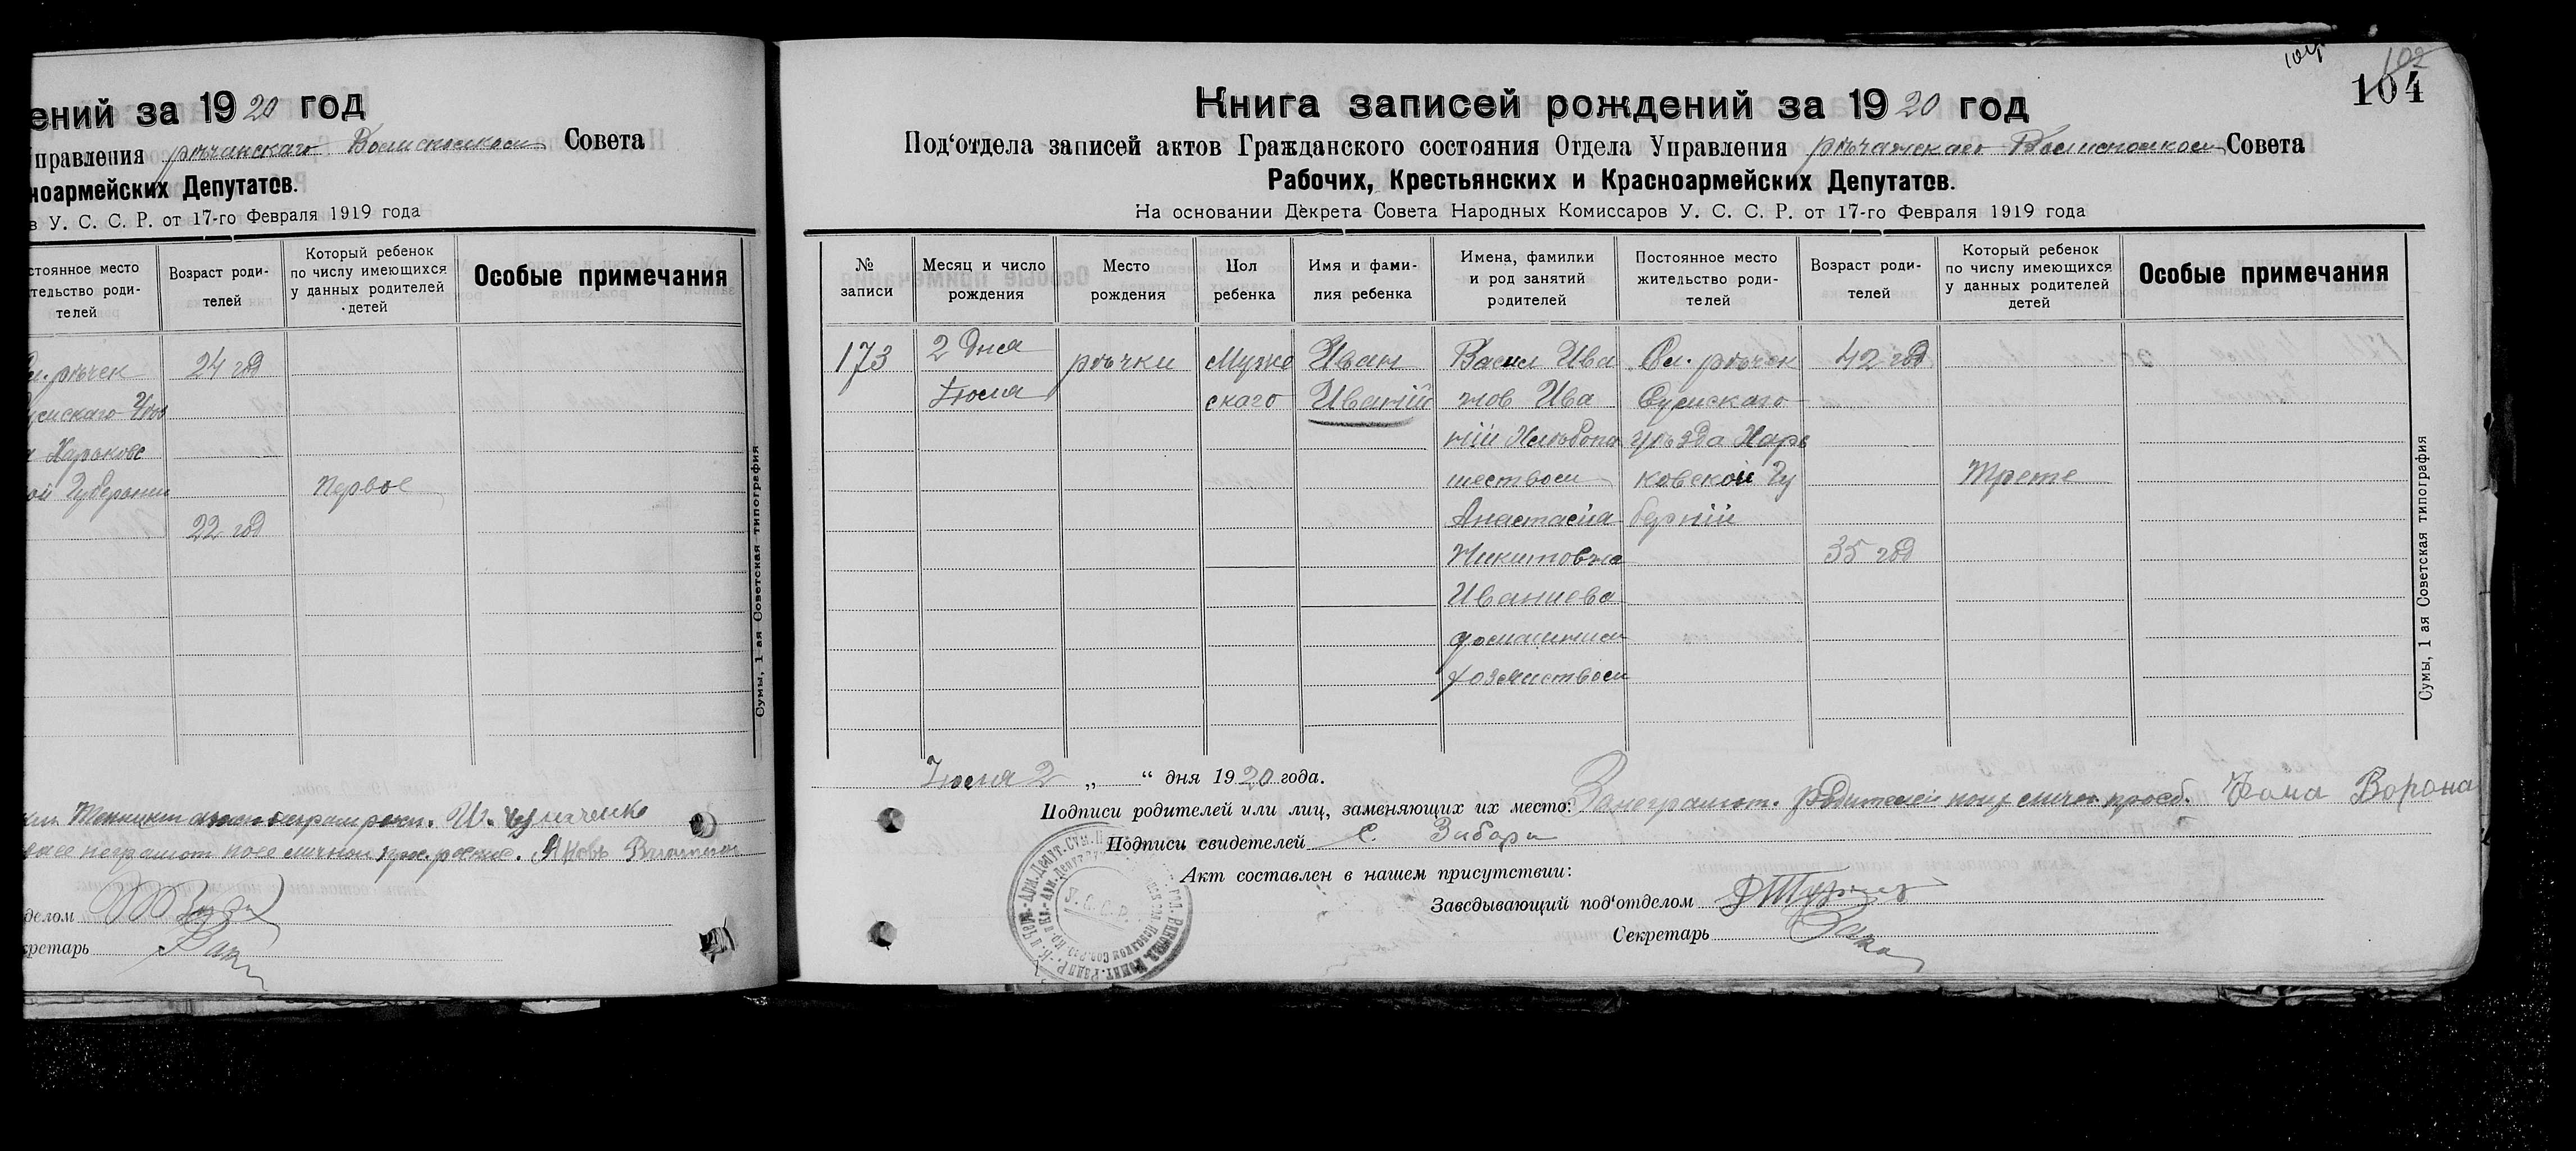 ений за 1920 год
управления речанскаго Волисполком Совета
ноармейских Депутатов.
в У. С. С. Р. от 17-го Февраля 1919 года
стоянное место
тельство роди-
телей
Возраст роди-
телей
Который ребенок
по числу имеющихся
у данных родителей
детей
Особые примечания
Сл. речек
24 год
Сумскаго Уез
Харьковс
ой Губернии
первое
22 год
Сумы, 1-ая Советская типография
Яковъ
делом
кретарь
104
102
104
Книга записей рождений за 1920 год
Под'отдела записей актов Гражданского состояния Отдела Управления речанскаго Волисполком Совета
Рабочих, Крестьянских и Красноармейских Депутатов.
На основании Декрета Совета Народных Комиссаров У. С. С. Р. от 17-го Февраля 1919 года
№
записи
Месяц и число
рождения
Место
рождения
Пол
ребенка
Имя и фами-
лия ребенка
Имена, фамилии
и род занятий
родителей
Постоянное место
жительство роди-
телей
Возраст роди-
телей
Который ребенок
по числу имеющихся
у данных родителей
детей
Особые примечания
173 2 дня речки Муже Иван Васил Ива Сл. речек 42 год
Июля ского Иваній нов Ива Сумскаго
ній Хлебопа уезда Харь
шеством ковской Гу Трете
Анастасіа берніи
Никитовна 35 год
Иваниева
домашним
хозяиством
Сумы, 1 ая Советская типография
Июля 2 „ “ дня 1920 года.
Подписи родителей или лиц, заменяющих их место: За неграмот. родителей по их личн. прозб. Фома Ворона
Подписи свидетелей С. Забара
Акт составлен в нашем присутствии:
Заведывающий под'отделом
Секретарь
У.С.С.Р.